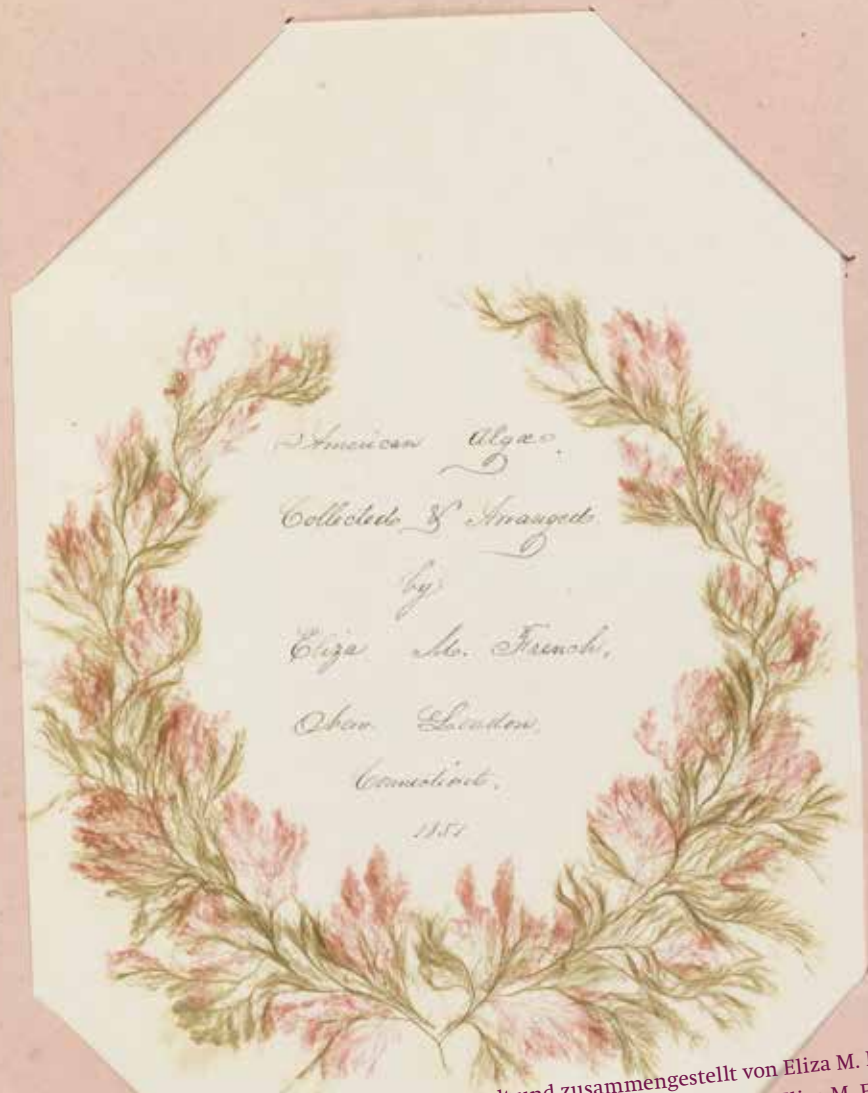 American Algæ.
Collected & Arranged
by
Eliza M. French,
New London,
Connecticut.
1851
und zusammengestellt von Eliza M.
M.